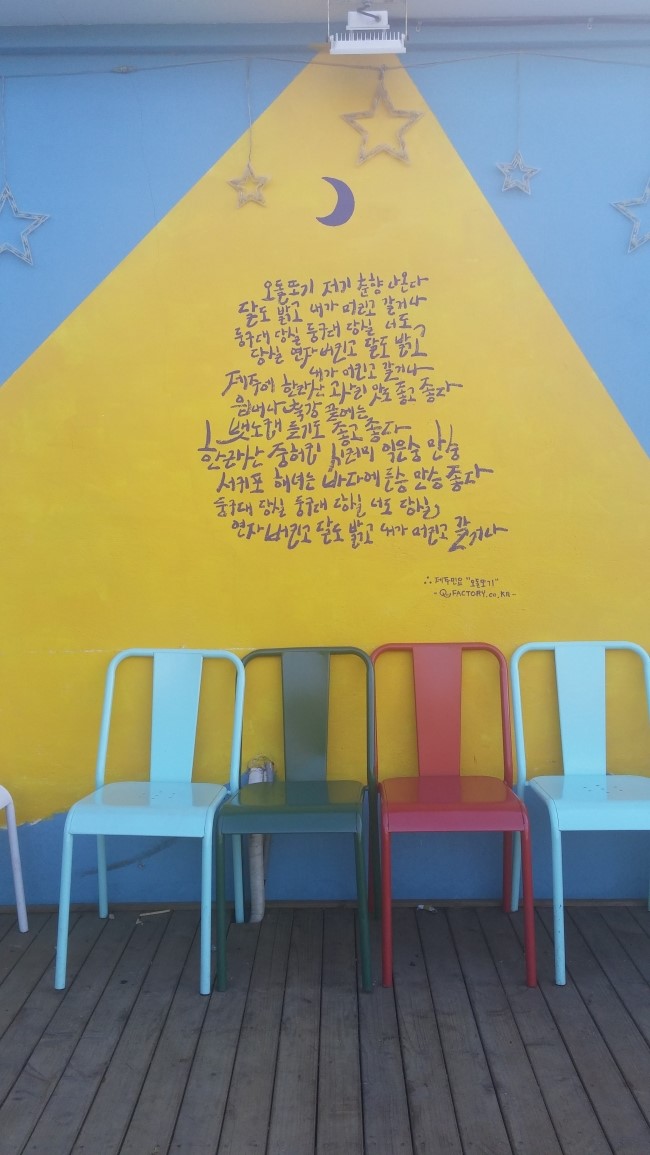 오돌또기 저기 춘향 나온다
달도 밝고 내가 머리로 갈거나
둥구대 당실 둥구대 당실 너도
당실 연자 버리고 달도 밝고
내가 머리로 갈거나
제주에 한라산 고사리 맛도 좋고 좋다
끝에는
뱃노래 듣기도 좋고 좋다
한라산 중허리
서귀포 해녀는 바다에 든숭 만숭 좋다
둥구대 당실 둥구대 당실 너도 당실
연자 버리고 달도 밝고 내가 머리로 갈거나
∴ 제주민요 "오돌또기"
FACTORY.co.KR